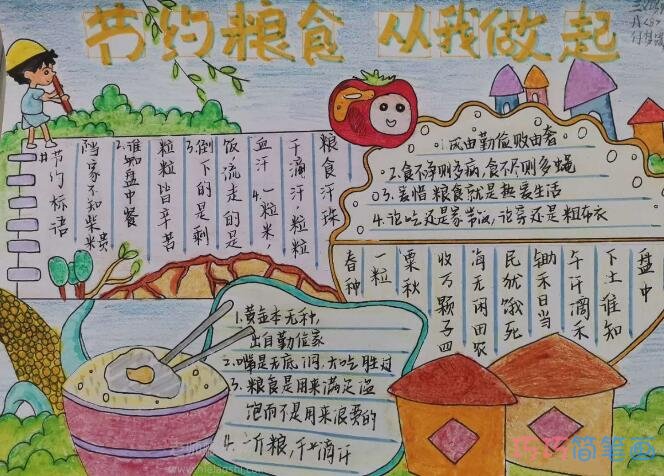 节约粮食 从我做起
节约标语
当家不知柴米贵
2.谁知盘中餐
粒粒皆辛苦
3.倒下的是剩
饭,流走的是
血汗.4.一粒米,
千滴汗,粒粒
粮食汗珠
1.成由勤俭,败由奢
2.食不净则多病,食不尽则多蝇
3.爱惜粮食就是热爱生活
4.论吃还是家常饭,论穿还是粗布衣
春种
一粒
粟秋
收万颗子四
海无闲田农
民犹饿死
锄禾日当
午汗滴禾
下土谁知
盘中
1.黄金本无种,
出自勤俭家
2.嘴是无底洞,大吃胜过
3.粮食是用来满足温
饱而不是用来浪费的
4.一斤粮,千滴汗
简笔画